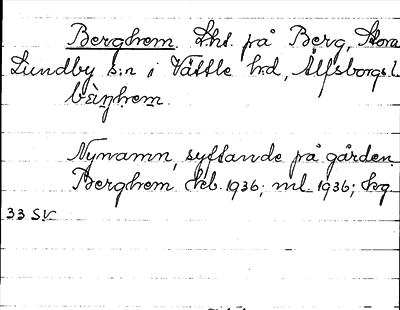 Berghem. Lhs. på Berg, Stora
Lundby s:n i Vättle hd, Älfsborgs l.
bæ̀ŋhem.
Nynamn, syftande på gården
Berghem kb. 1936; ml. 1936; hg.
33 SV